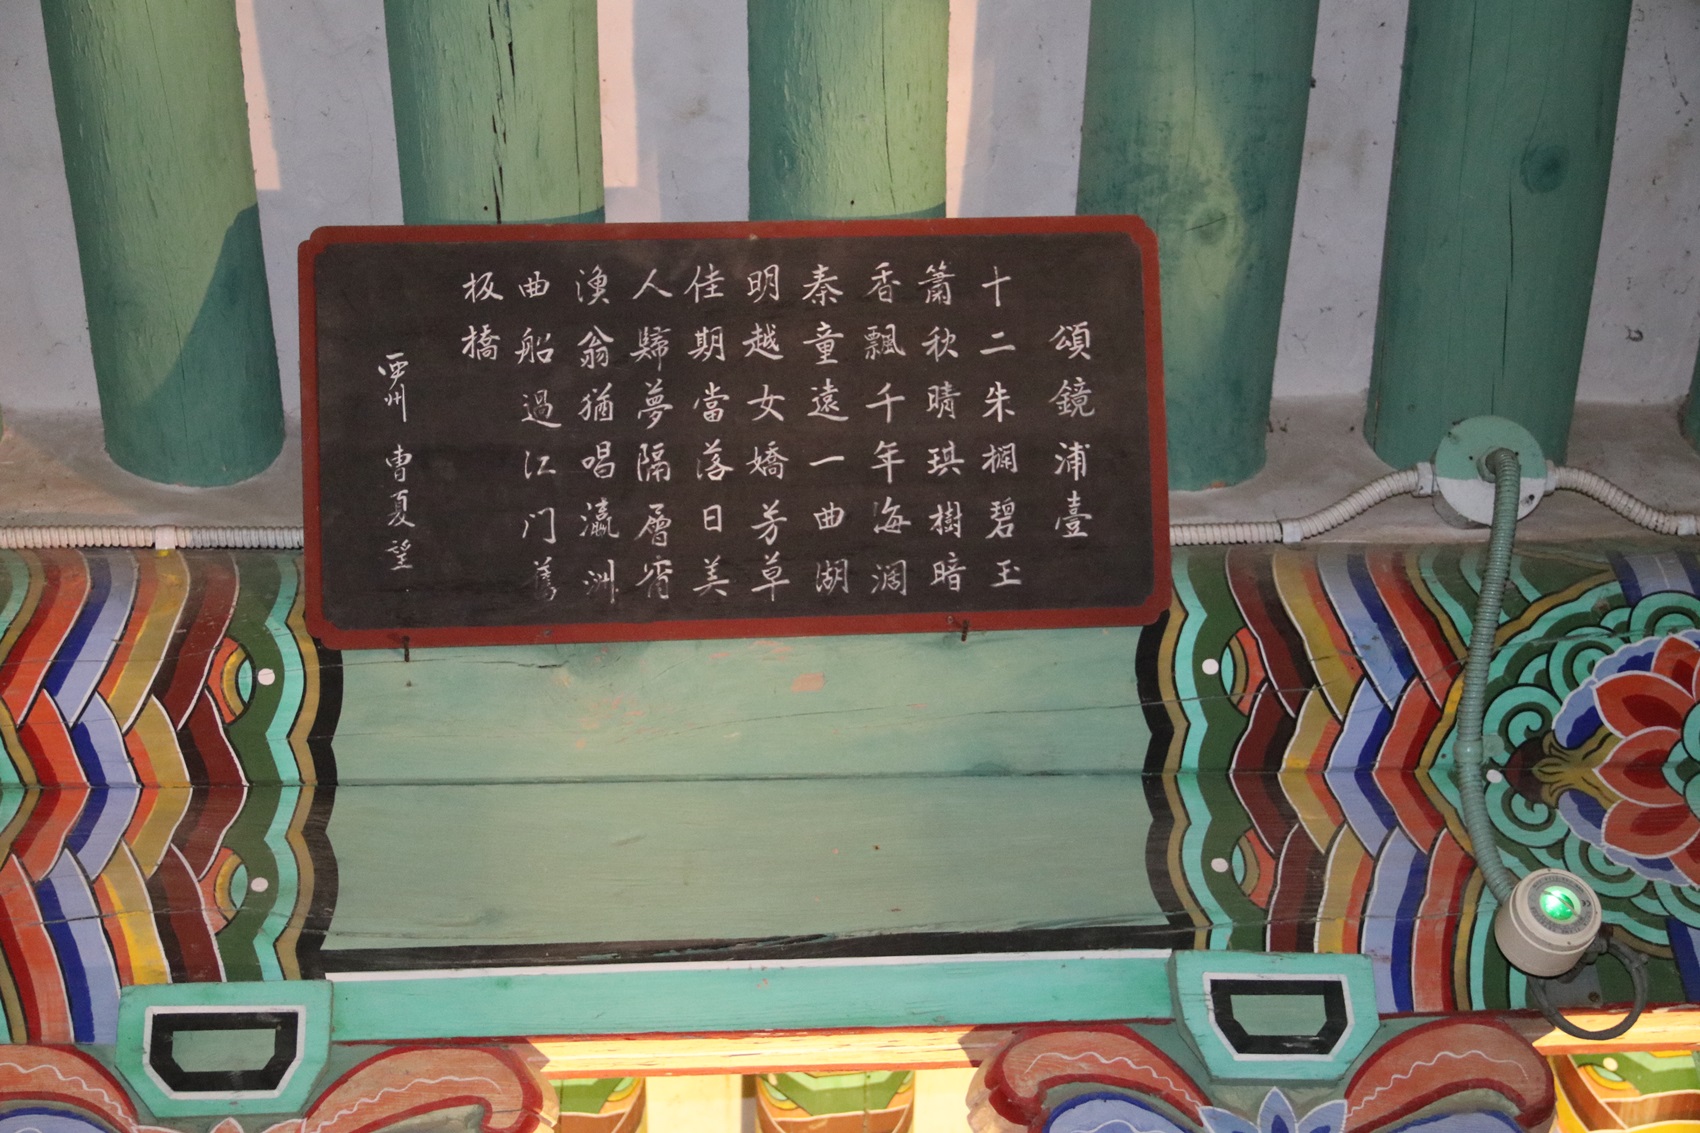 頌鏡浦臺
十二朱欄碧玉
簫秋晴琪樹暗
香飄千年海濶
秦童遠一曲湖
明越女嬌芳草
佳期當落日美
人歸夢隔層宵
漁翁猶唱瀛洲
曲船過江门舊
板橋
曹夏望